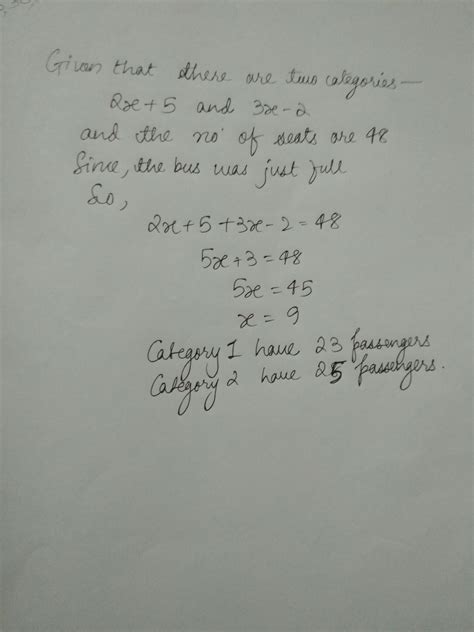 Given that there are two categories—
2x+5 and 3x-2
and the no. of seats are 48
Since, the bus was just full
So,
2x+5+3x-2=48
5x+3=48
5x=45
x=9
Category 1 have 23 passengers
Category 2 have 25 passengers.